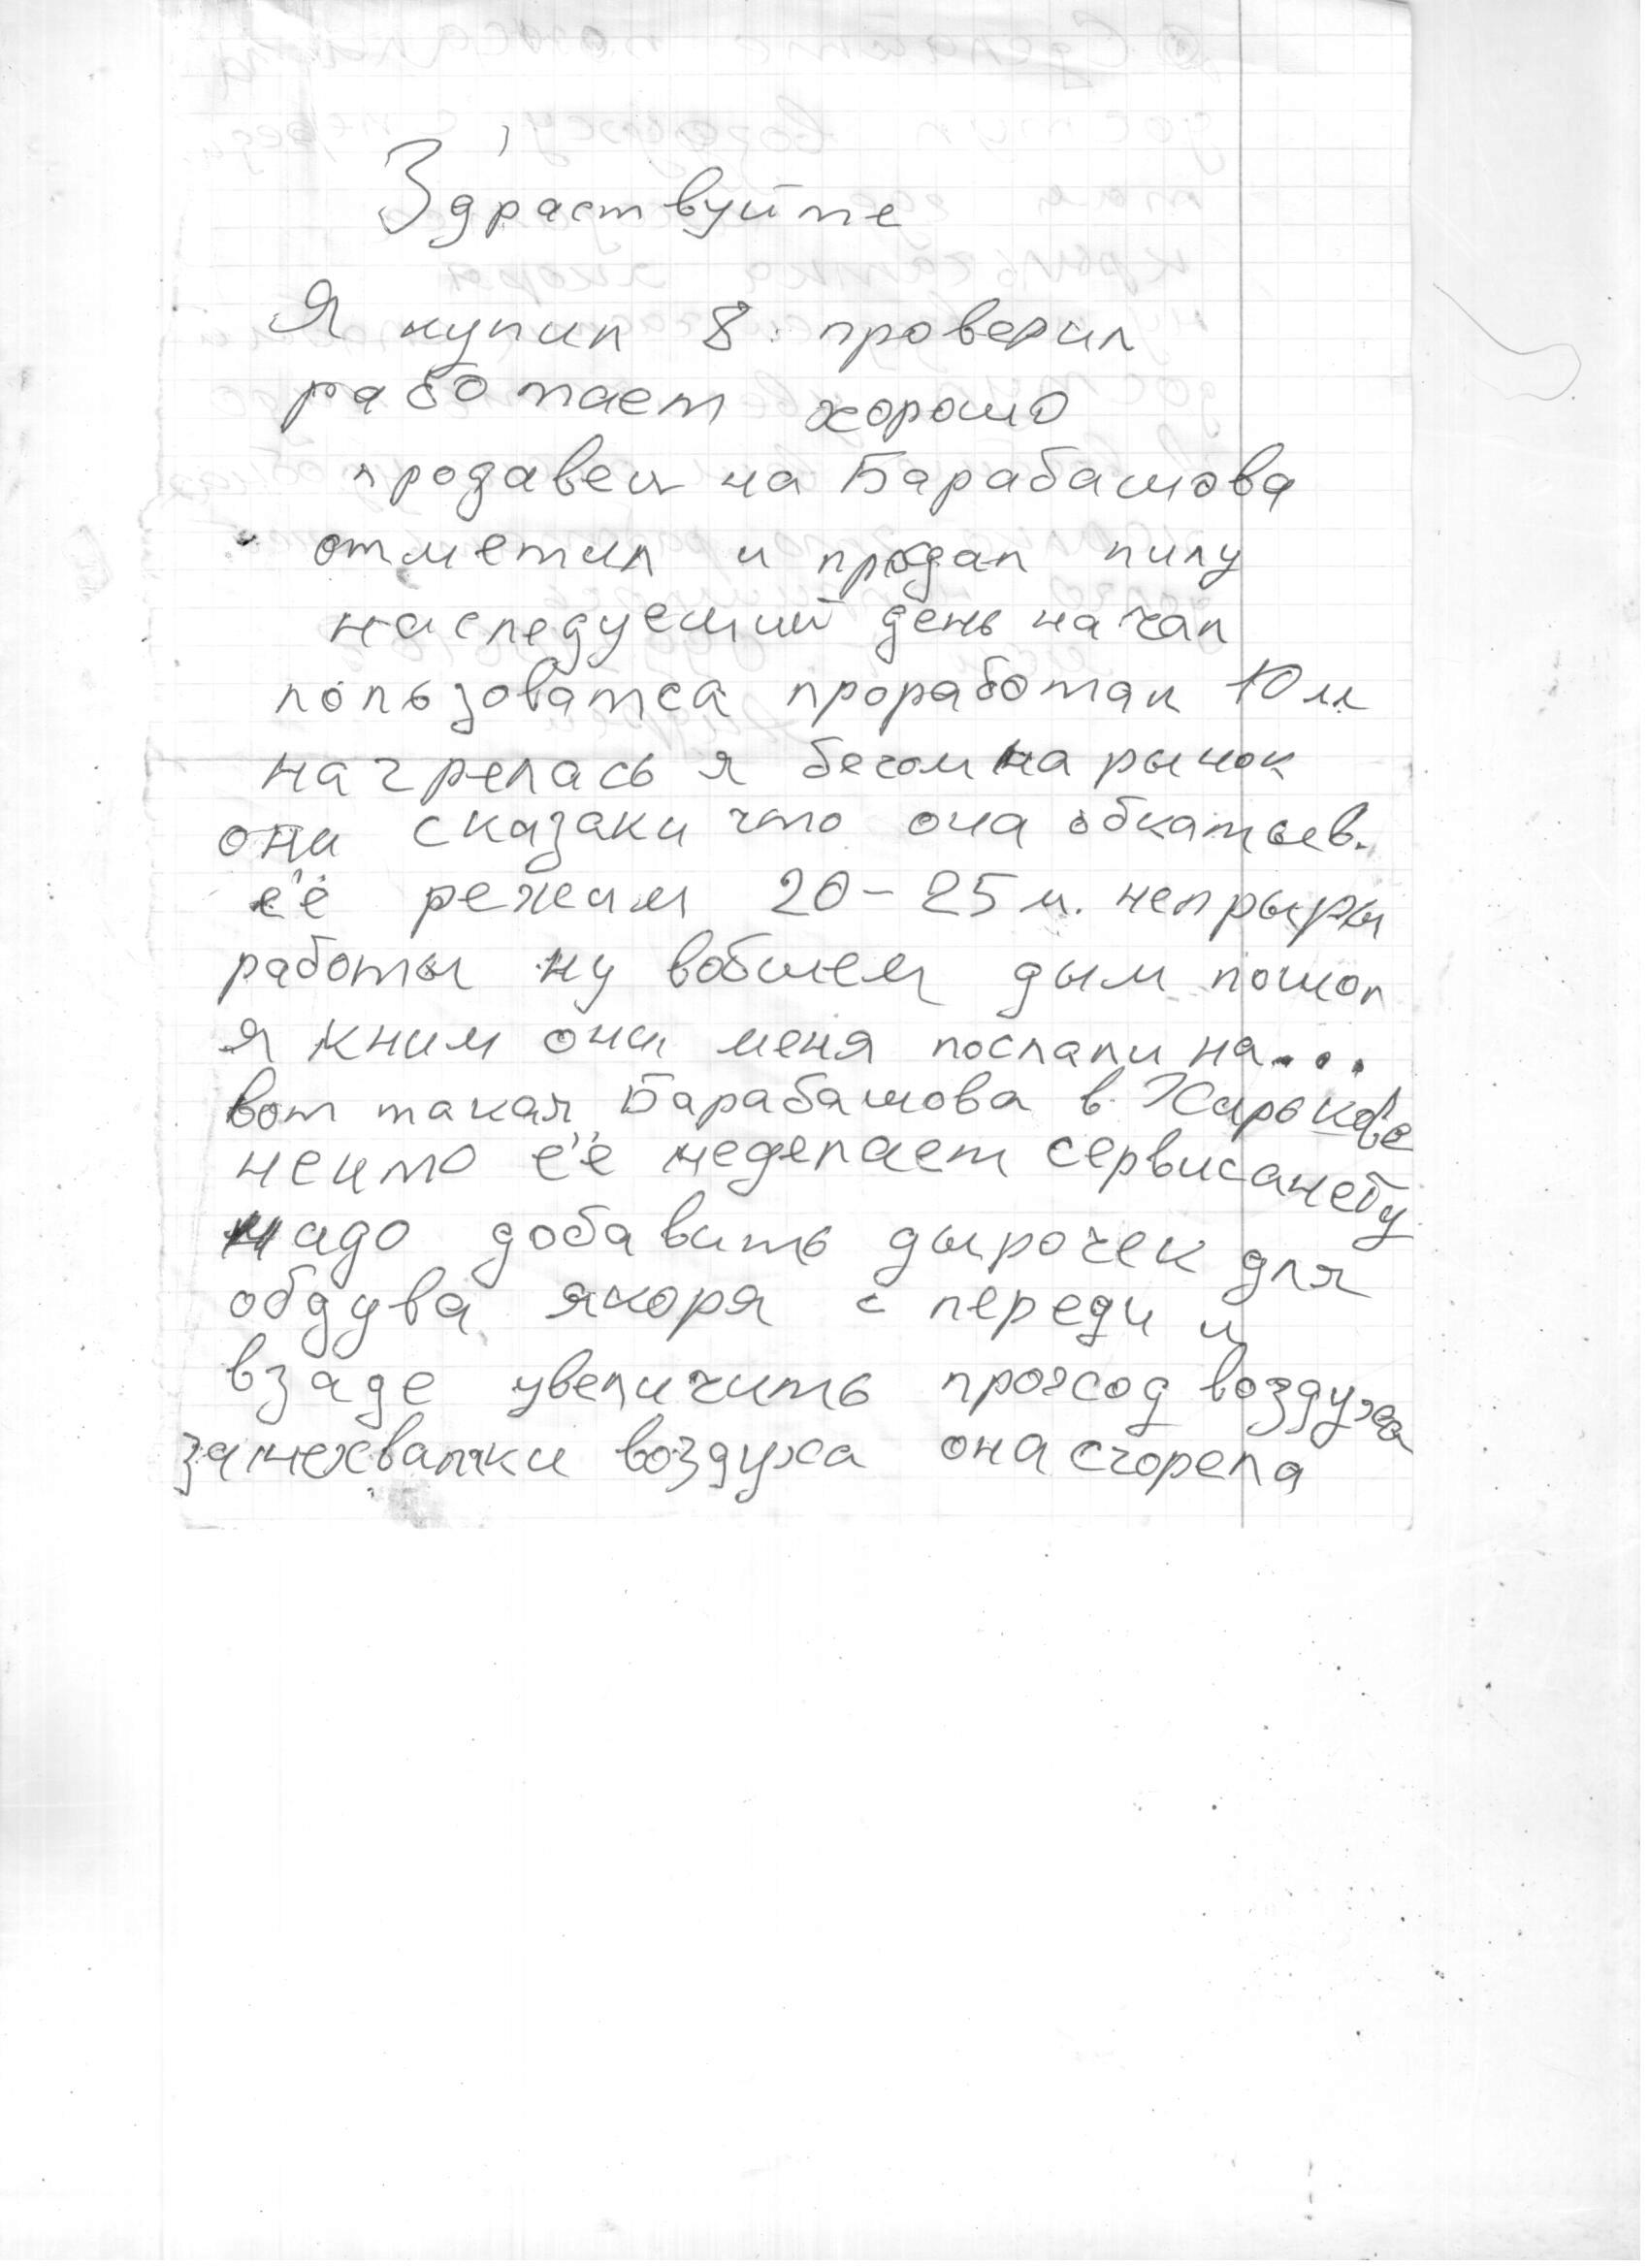 Здраствуйте
Я купил 8. проверил
работает хорошо
продавец на Барабашова
отметил и продал пилу
наследуещий день начал
ползоватса проработал 10 м
нагрелась я бегом на рынок
они сказали что она обкатыв.
её режим 20-25 м. непрыры
работы ну вобщем дым пошол
я кним они меня послали на...
вот такая Барабашова в Харькове
нехто её неделает сервисанебу
надо добавить дырочек для
обдува якоря с переди и
взаде увеличить проход воздуха
занехватки воздуха она сгорела